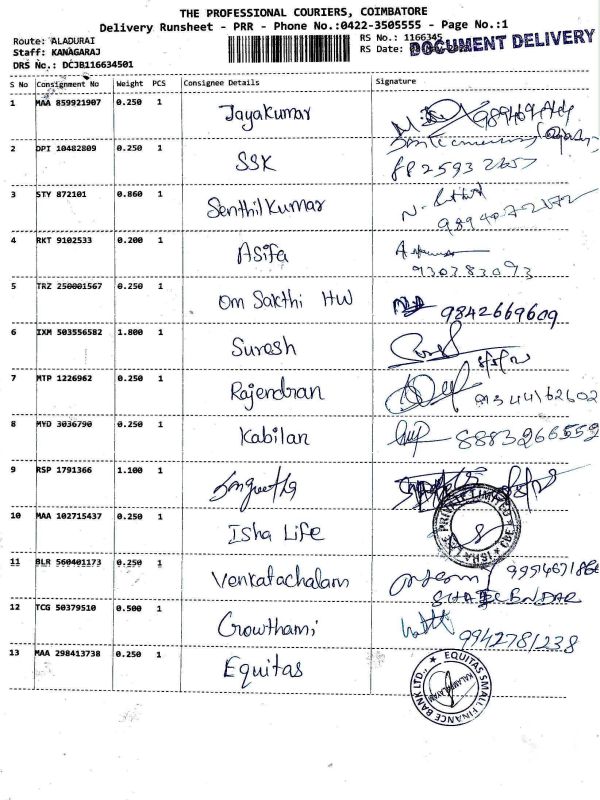 THE PROFESSIONAL COURIERS, COIMBATORE
Delivery Runsheet - PRR - Phone No.:0422-3505555 - Page No.:1
Route: ALADURAI
Staff: KANAGARAJ
DRS No.: DCJB116634501
RS No.: 1166345
RS Date:
DOCUMENT DELIVERY
S No Consignment No Weight PCS Consignee Details Signature
1 MAA 859921907 0.250 1 Jayakumar
2 DPI 10482809 0.250 1 SSK
3 STY 872101 0.860 1 Senthil Kumar
4 RKT 9102533 0.200 1 Asifa
5 TRZ 250001567 0.250 1 Om Sakthi HW 9842669609
6 IXM 503556582 1.800 1 Suresh
7 MTP 1226962 0.250 1 Rajendran
8 MYD 3036790 0.250 1 Kabilan 8883266559
9 RSP 1791366 1.100 1 Sangeetha
10 MAA 102715437 0.250 1 Isha Life
11 BLR 560401173 0.250 1 Venkatachalam
12 TCG 50379510 0.500 1 Gowthami 9942781238
13 MAA 298413738 0.250 1 Equitas
EQUITAS SMALL FINANCE BANK LTD.,